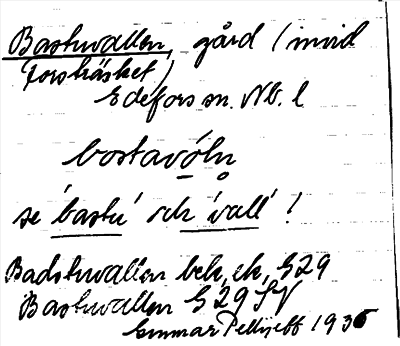 Bastuvallen, gård (invid
Forsträsket)
Edefors sn. Nb. l
bostavóln̥
se 'bastu' och 'vall'!
Badstuvallen bek, ek, S29
Bastuvallen S29 SV
Gunnar Pellijeff 1936